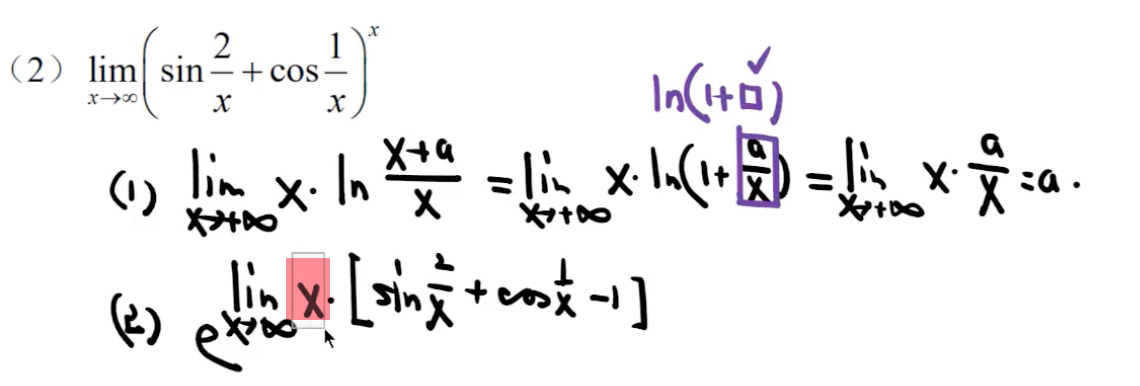 （2） lim_{x→∞} (sin 2/x + cos 1/x)^x
ln(1+□) ✓
(1) lim_{x→+∞} x· ln (x+a)/x = lim_{x→+∞} x· ln(1+ a/x) = lim_{x→+∞} x· a/x = a .
(2) e^{lim_{x→∞} x· [sin 2/x + cos 1/x -1]}